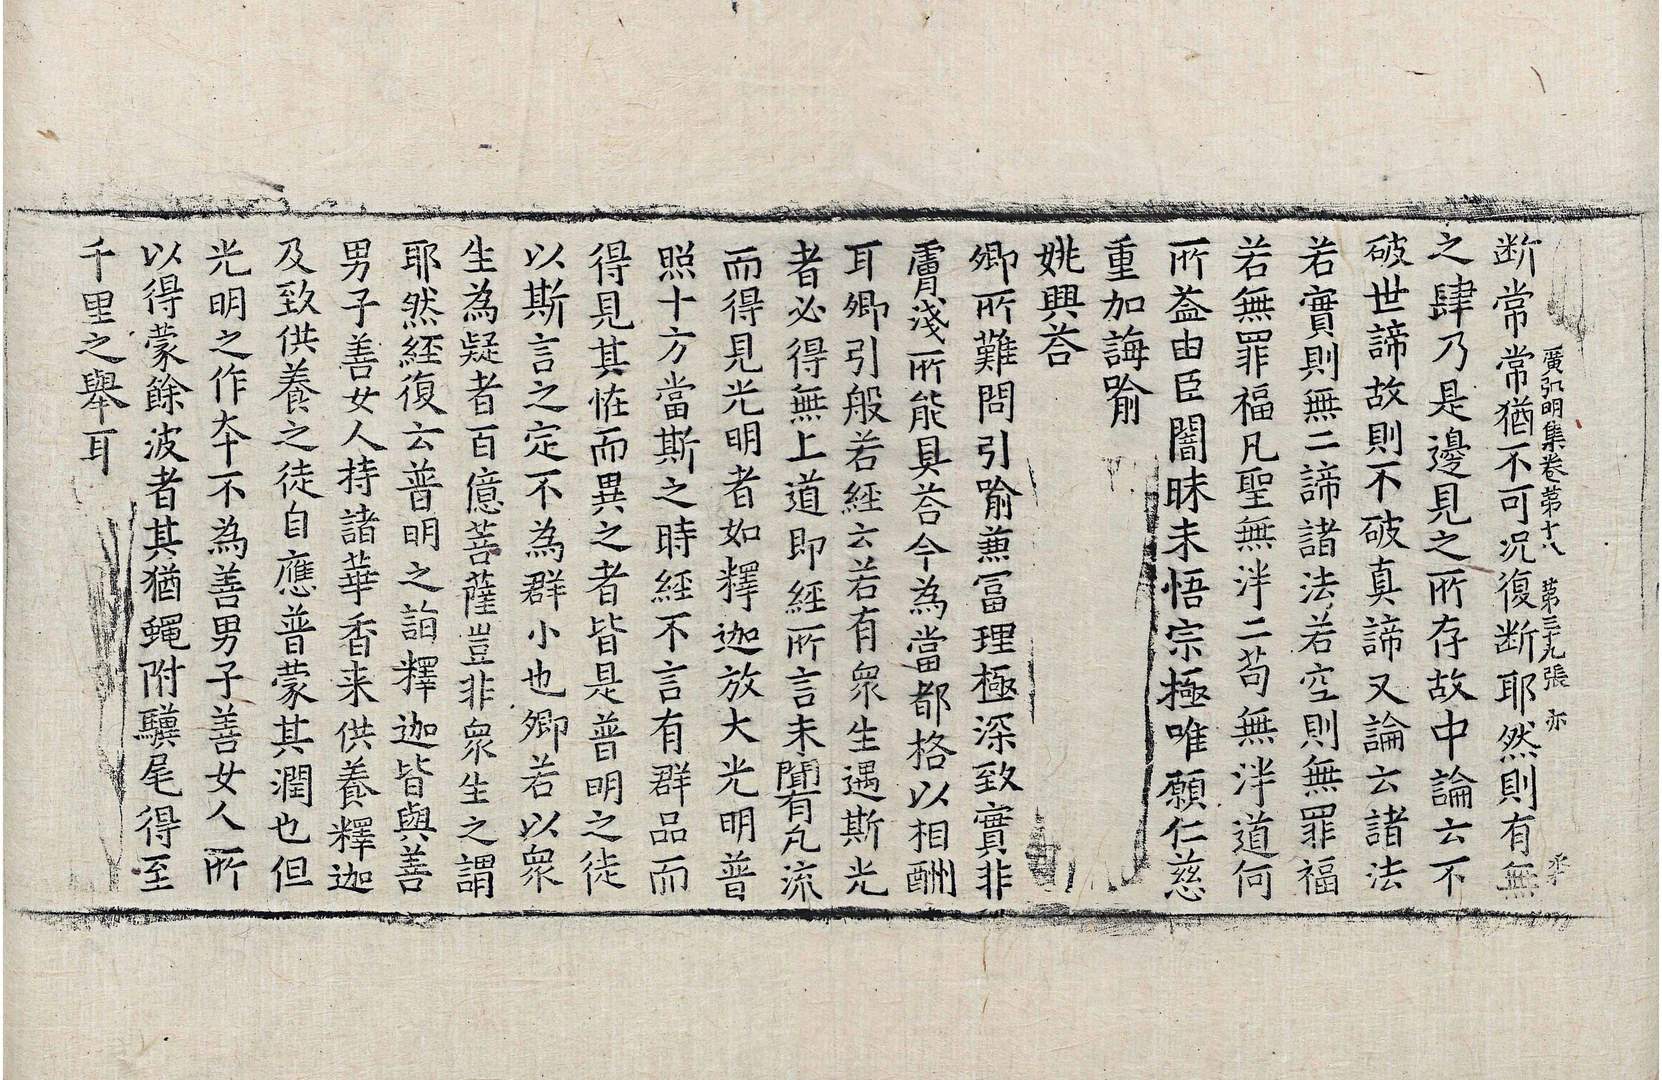 廣弘明集卷第十八　第三十九張　亦
断常常猶不可况復断耶然則有無
之肆乃是邊見之所存故中論云不
破世諦故則不破真諦又論云諸法
若實則無二諦諸法若空則無罪福
若無罪福凡聖無泮二苟無泮道何
所益由臣闇昧未悟宗極唯願仁慈
重加誨喻
姚興荅
卿所難問引喻兼冨理極深致實非
膚淺所能具荅今為當都格以相酬
耳卿引般若経云若有衆生遇斯光
者必得無上道即經所言未聞有凡流
而得見光明者如釋迦放大光明普
照十方當斯之時經不言有群品而
得見其恠而異之者皆是普明之徒
以斯言之定不為群小也卿若以衆
生為疑者百億菩薩豈非衆生之謂
耶然経復云普明之詣釋迦皆與善
男子善女人持諸華香来供養釋迦
及致供養之徒自應普蒙其潤也但
光明之作夲不為善男子善女人所
以得蒙餘波者其猶蝇附驥尾得至
千里之舉耳